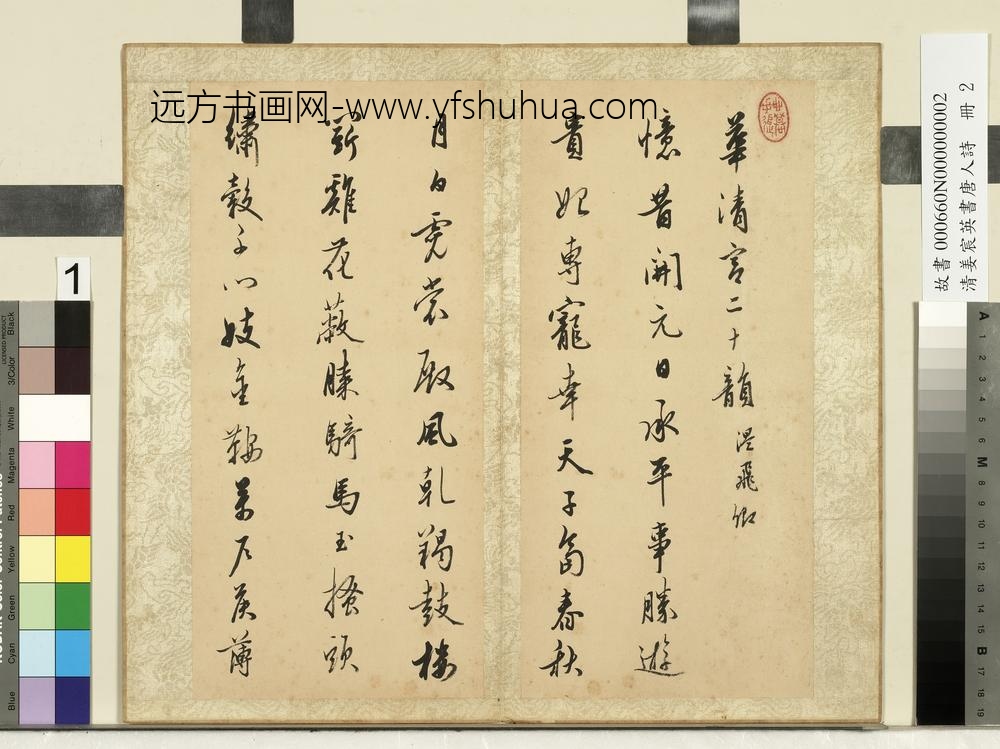 远方书画网-www.yfshuhua.com
華清宮二十韻 溫飛卿
憶昔開元日承平事勝遊
貴妃專寵幸天子富春秋
月白霓裳殿風乾羯鼓樓
鬥雞花蔽膝騎馬玉搔頭
繡轂千門妓金鞍萬戶侯薄
故書 000660N000000002
清姜宸英書唐人詩 冊 2
1
Black
3/Color
White
Magenta
Red
Yellow
Green
Cyan
Blue
A 1 2 3 4 5 6 M 8 9 10 11 12 13 14 15 B 17 18 19